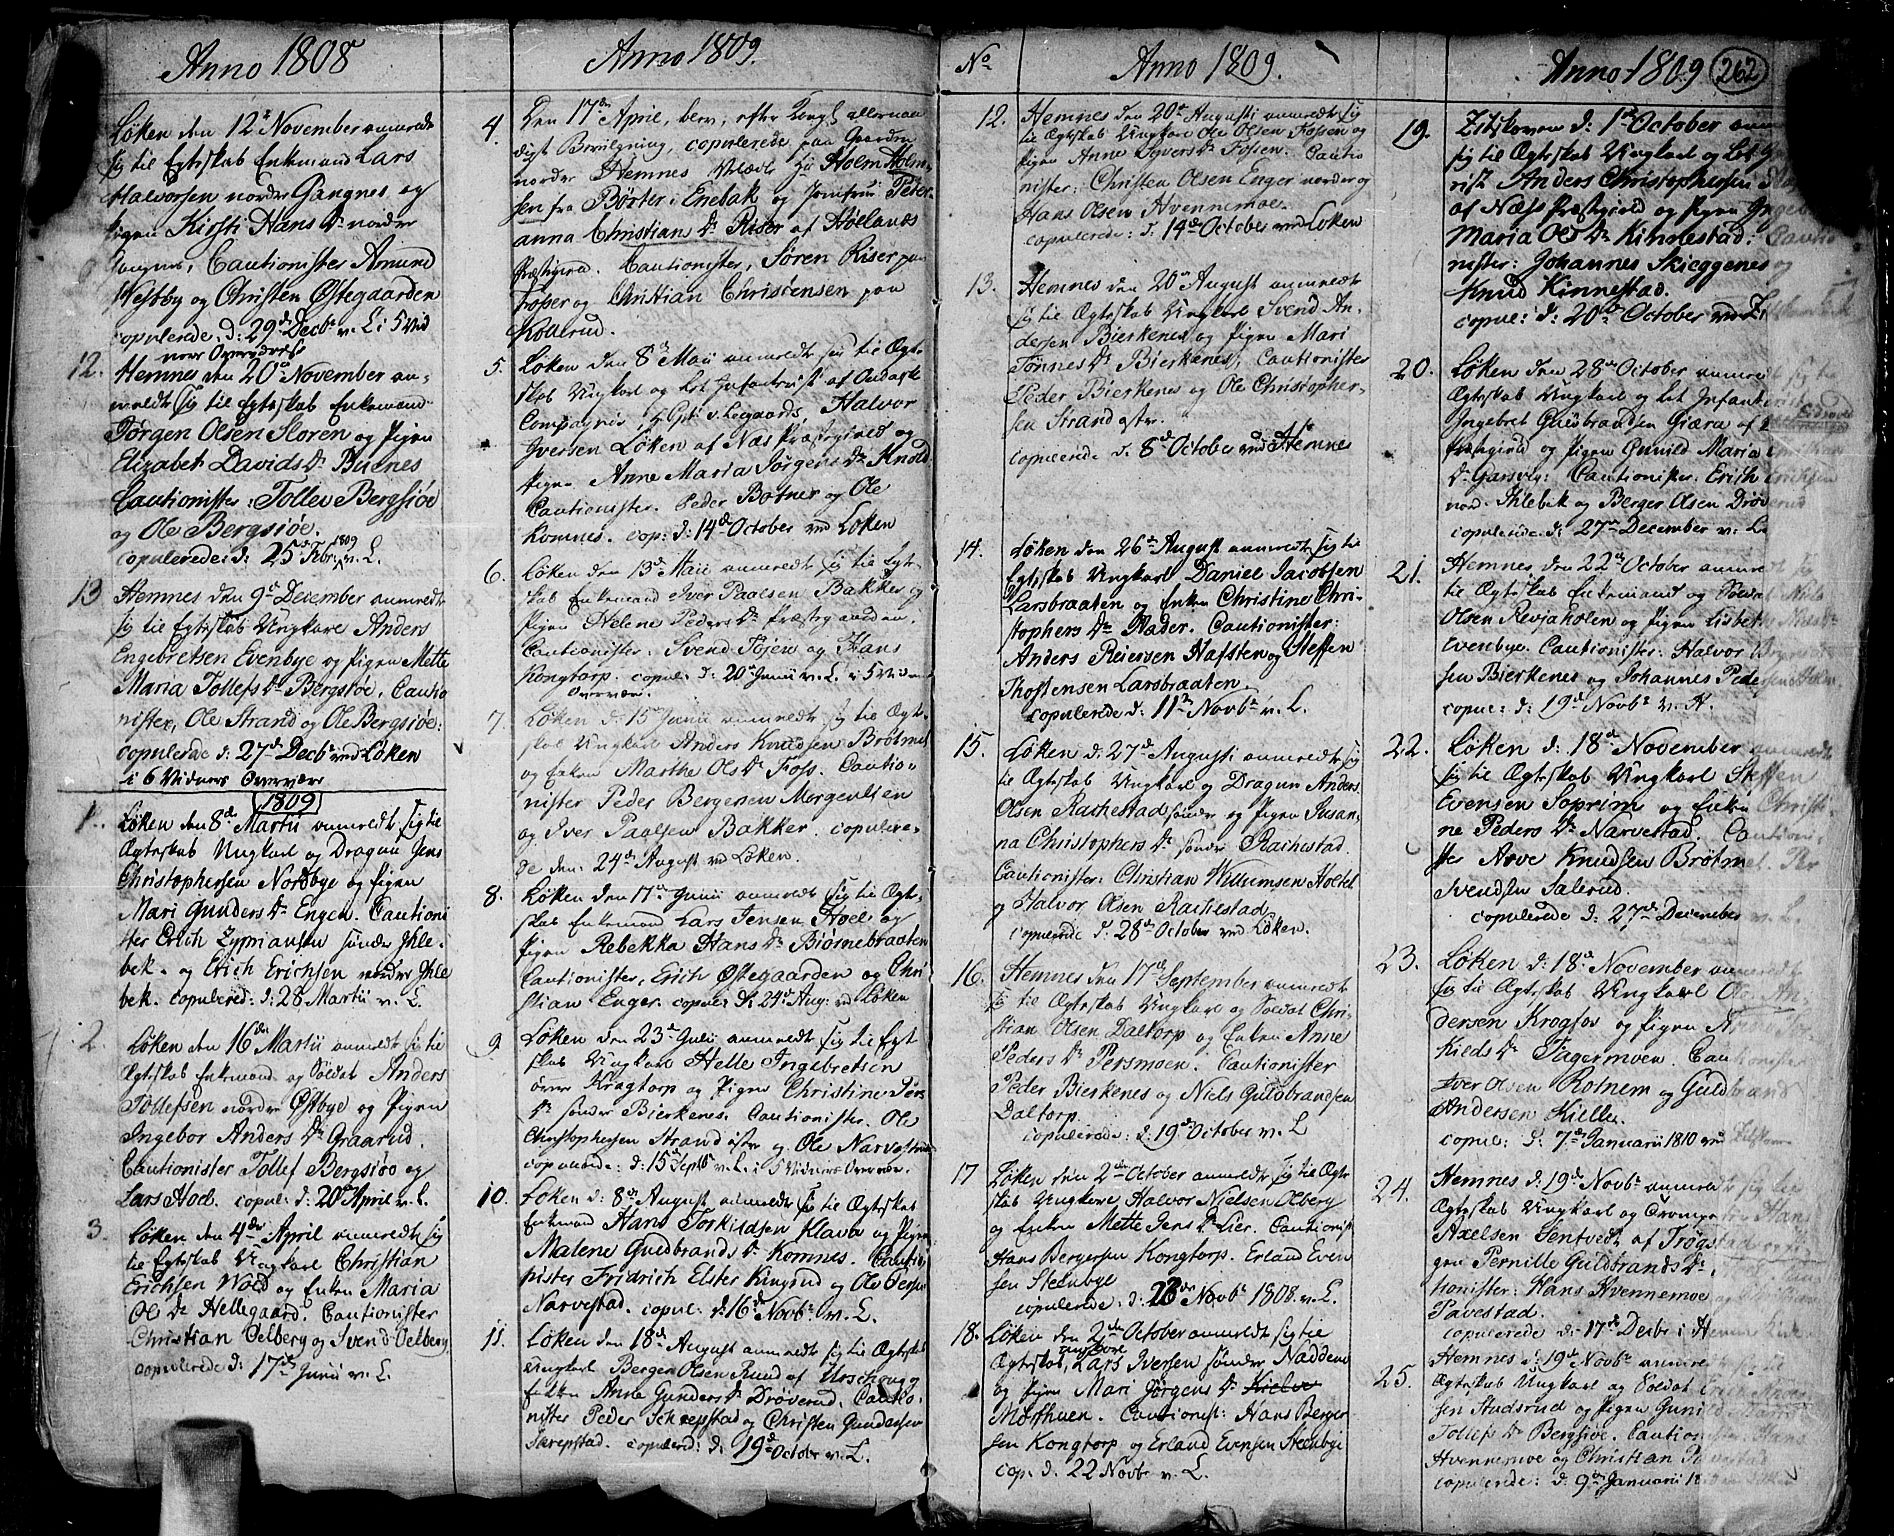 Anno 1808
Løken den 12te November anmeldt
sig til Egteskab Enkemand Lars
Halvorsen nordre Gangnes og
Pigen Kirsti Hans Dr nordre
Gangnes, Cautionister Amund
Westby og Christen Østegaarden
copulerede: d: 29de Decbr v. L. i 5 Vid
ners Overværelse
12. Hemnes den 20de November an-
meldt sig til Egteskab Enkemand
Jørgen Olsen Sloren og Pigen
Elizabet Davids Dr Buenes
Cautionister: Tollev Bergsiøe
og Ole Bergsiøe.
copulerede d: 25de Febr. 1809 v. L.
13 Hemnes den 9de December anmeldt
sig til Egteskab Ungkarl Anders
Engebretsen Evenbye og Pigen Mette
Maria Tollefs Dr Bergsiøe. Cautio
nister, Ole Strand og Ole Bergsiøe.
copulerede d: 27de Decbr ved Løken
i 6 Vidners Overvær
1809
1. Løken den 8de Martii anmeldt sig til
Ægteskab Ungkarl og Dragun Jens
Christophersen Nordbye og Pigen
Mari Gunders Dr Engen. Cautioni
ster Erich Zyprianssen søndre Ihle-
bek. og Erich Erichsen nordre Ihle
bek. copulered: d: 28 Martii v. L.
2. Løken den 16de Martii anmeldt sig til
Ægteskab Enkemand og Soldat Anders
Tollefsen nordre Østbye og Pigen
Ingebor Anders Dr Graarud.
Cautionister Tollef Bergsiøe og
Lars Hoel. copul: d: 20de April v. L.
3. Løken den 4de April anmeldt sig
til Egteskab Ungkarl Christian
Erichsen Wold og Enken Maria
Ols Dr Hellegaard. Cautionister
Christian Oelberg og Svend Oelberg
copulerede d: 17de Junii v. L.
Anno 1809.
4. Den 17de April, blev, efter Kongl. allernaa
digst Bevilgning, copulerede paa Gaarden
nordre Hemnes Holm Holm-
sen fra Børter i Enebak og Jomfru Peder
anna Christian Dr Riser af Hølands
Præstegield. Cautionister, Søren Riser paa
Toper og Christian Christensen paa
Kollerud.
5. Løken den 8de Maii anmeldt sig til Ægte
skab Ungkarl og Let Infanterist af Omark
Compagnie, Halvor
Iversen Løken af Næs Præstegield og
Pigen Anne Maria Jørgens Dr Knold
Cautionister. Peder Botner og Ole
Komnes. cop: d: 14de October ved Løken
6. Løken den 13de Maii anmeldt sig til Egte-
skab Enkemand Iver Paalsen Bakker og
Pigen Helene Peders Dr Præstegaarden.
Cautionister. Svend Tøien og Hans
Kongtorp. copul: d: 20de Junii v. L. i 5 Vidn
Overvær.
7. Løken d: 15de Junii anmeldt sig til Ægte-
skab Ungkarl Anders Knudsen Brøtmet
og Enken Marthe Ols Dr Foss. Cautio
nister Peder Bergersen Morgenlien
og Iver Paalsen Bakker. copulere-
de den: 24de August ved Løken.
8. Løken den 17de Junii anmeldt sig til Ægte-
skab Enkemand Lars Jensen Hoel og
Pigen Rebekka Hans Dr Biørnebraaten
Cautionister, Erich Østegaarden og Chri
stian Enger. copul: d: 24de Aug: v Løken
9 Løken den 23de Julii anmeldt sig til Egt
skab Ungkarl Helle Ingebretsen
øvre Kragtorp og Pigen Christine Tørs
Dr søndre Bierkenes. Cautionister. Ole
Christophersen Strand østre og Ole Narvestad
copulerede: d: 15de Septb v. L. i 5 Vidners Overvær.
10. Løken d: 8de August anmeldt sig til Ægteskab
Enkemand Hans Torkildsen Klava og Pigen
Malene Guldbrands Dr Komnes. Cauti
nister Fridrich Elster Kinsrud og Ole Persen
Narvestad. copul: d: 16de Novbr v. L.
11. Løken den 18de August anmeldt sig til Ægteskab
Ungkarl Berger Olsen Rud af Urschoug og
Enken Anne Gunders Dr Drøverud. Cautio-
nister Peder Schrepstad og Christen Gundersen
Skrepstad. copulered: d: 19de October v. L.
No Anno 1809.
12. Hemnes den 20de Augusti anmeldt sig
til Ægteskab Ungkarl Ole Olsen Fossen og
Pigen Anne Syvers Dr Fossen. Cautio
nister: Christen Olsen Enger nordre og
Hans Olsen Hvennemoe.
copulerede: d: 14de October ved Løken
13. Hemnes den 20de August anmeldt
sig til Ægteskab Ungkarl Svend An-
dersen Bierkenes og Pigen Mari
Tønnes Dr Bierkenes; Cautionister
Peder Bierkenes og Ole Christopher-
sen Strand østr.
copulerede d. 8de October ved Hemnes
14. Løken den 26de August anmeldt sig til
Egteskab Ungkarl Daniel Jacobsen
Larsbraaten og Enken Christine Chri-
stophers Dr Mader. Cautionister:
Anders Reiersen Hafsten og Steffen
Thostensen Larsbraaten.
copulerede d: 11te Novbr v. L.
15. Løken d: 27de Augusti anmeldt sig
til Ægteskab Ungkarl og Dragun Anders
Olsen Rachestad søndre og Pigen Susan-
na Christophers Dr søndre Rachestad.
Cautionister: Christian Willumsen Holtet
og Halvor Olsen Rachestad
copulerede d. 28de October ved Løken.
16. Hemnes den 17de September anmeldt
sig til Ægteskab Ungkarl og Soldat Chri-
stian Olsen Daltorp og Enken Anne
Peders Dr Persmoen. Cautionister
Peder Bierkenes og Niels Guldbrandsen
Daltorp.
copulerede: d: 19de October v. L
17 Løken den 2den October anmeldt sig til Ægte
skab Ungkarl Halvor Nielsen Olberg
og Enken Mette Jens Dr Lier. Cautionist
Hans Bergersen Kongtorp. Erland Even
sen Steenbye
copulerede: d: 26de Novbr 1808 v. L.
18. Løken den 2den October anmeldt sig til
Ægteskab, Ungkarl Lars Iversen søndre Naddem
og Pigen Mari Jørgens Dr Kielle
Mosthuen. Cautionist: Hans Berger
sen Kongtorp og Erland Evensen Steenbye
cop. d. 22 Novbr v. L.
Anno 1809 262
19. Zitskoven d: 1ste October anm
sig til Ægteskab Ungkarl og Let
rist Anders Christophersen
af Næss Præstegield og Pigen Ingebor
Maria Ols Dr Kinnestad. Cautio
nister: Johannes Skieggenes og
Knud Kinnestad.
copul: d: 20de October ved
20. Løken den 28de October anmeldt sig til
Ægteskab Ungkarl og let Infanterist
Ingebret Guldbrandsen Giæra af Eidsvold
Præstegield og Pigen Gunild Maria
Dr Garsvig. Cautionister. Erich Erichsen
nord. Ihlebek og Berger Olsen Drøverud
copulerede d: 27de December v. Lø
21. Hemnes den 22de October anmeldt sig
til Ægteskab Enkemand og Soldat Nils
Olsen Revsaholen og Pigen Lisbet
Evenbye. Cautionister: Halvor
sen Bierkenes og Johannes Pedersen
copul: d: 19de Novbr v. H.
22. Løken d: 18de November anmeldt
sig til Ægteskab Ungkarl Steffen
Evensen Soprim og Enken Christi-
ne Peders Dr Narvestad. Cautioni-
ster Arve Knudsen Brøtmet. Per
Svendsen Salerud.
copulerede d: 27de December v. L.
23. Løken d: 18de November anmeldt
sig til Ægteskab Ungkarl Ole An-
dersen Krogfos og Pigen
Kilds Dr Fagermoen. Cautionister
Iver Olsen Rotnem og Guldbrand
Andersen Kielle.
copul: d: 7de Januarii 1810 ved
24. Hemnes d: 19de Novbr anmeldt sig til
Ægteskab Ungkarl og Hans
Axelsen Tentvedt af Trøgstad og Pi-
gen Pernille Guldbrands Dr
tionister: Hans Hvennemoe og
Pavestad.
copulerede d: 17de Decbr i Hemn Kirk
25. Hemnes d: 19de Novbr anmeldt sig til
Ægteskab Ungkarl og Soldat
sen Hudsrud og Pigen Gunild
Tollefs Dr Bergsiøe. Cautionist Hans
Hvennemoe og Christian Pavestad
copulerede: d: 9de Januarii